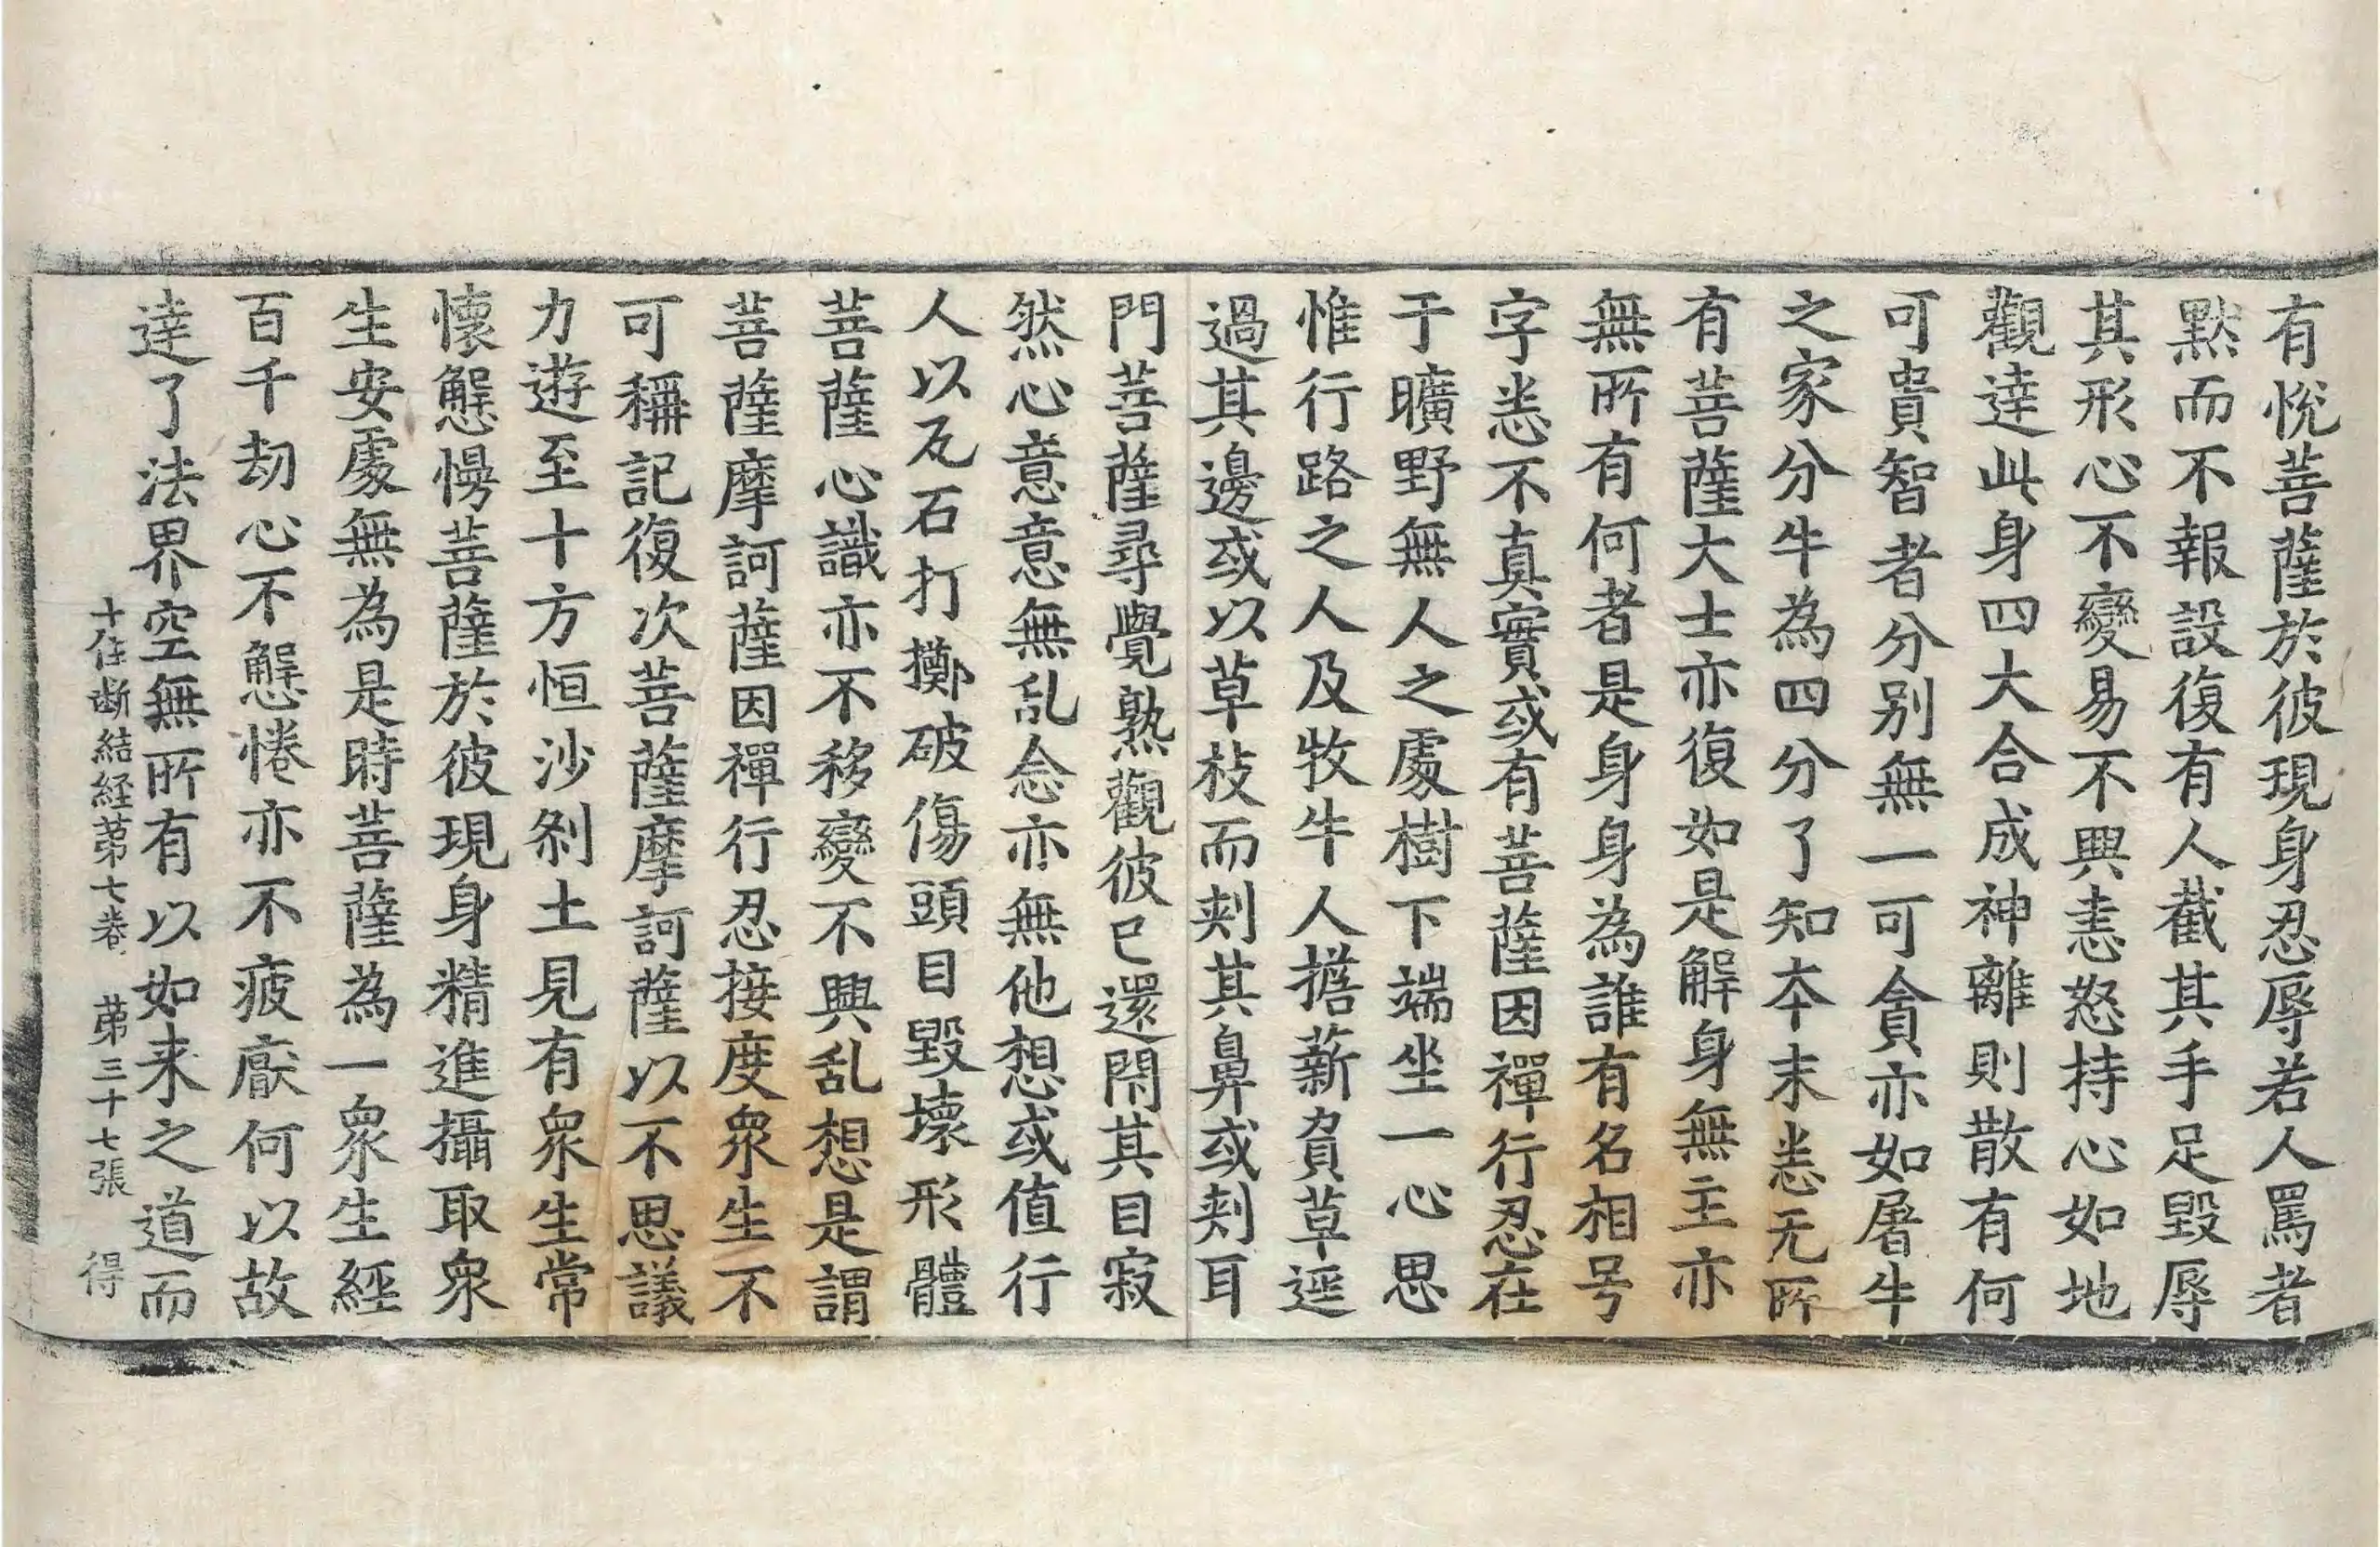 有悅菩薩於彼現身忍辱若人罵者
默而不報設復有人截其手足毀辱
其形心不變易不興恚怒持心如地
觀達此身四大合成神離則散有何
可貴智者分别無一可貪亦如屠牛
之家分牛為四分了知本末悉无所
有菩薩大士亦復如是解身無主亦
無所有何者是身身為誰有名相号
字悉不真實或有菩薩因禪行忍在
于曠野無人之處樹下端坐一心思
惟行路之人及牧牛人擔薪負草逕
過其邊或以草枝而刾其鼻或刾耳
門菩薩尋覺熟觀彼已還閇其目寂
然心意意無乱念亦無他想或值行
人以瓦石打擲破傷頭目毀壞形體
菩薩心識亦不移變不興乱想是謂
菩薩摩訶薩因禪行忍接度衆生不
可稱記復次菩薩摩訶薩以不思議
力遊至十方恒沙剎土見有衆生常
懷懈慢菩薩於彼現身精進攝取衆
生安處無為是時菩薩為一衆生經
百千劫心不懈惓亦不疲厭何以故
達了法界空無所有以如来之道而
十住断結経苐七卷 苐三十七張 得